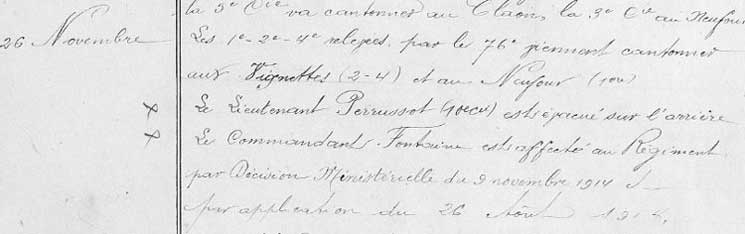 la 5e Cie va cantonner au Claon, la 3e Cie au Neufour
26 Novembre
Les 1e-2e-4e relevées par le 76e viennent cantonner
aux Vignettes (2-4) et au Neufour (1ère)
Le Lieutenant Perrussot (10ecie) est évacué sur l'arrière
Le Commandant Fontaine est affecté au Régiment
par Décision Ministérielle du 9 novembre 1914 et
par application du 26 Août 1914.